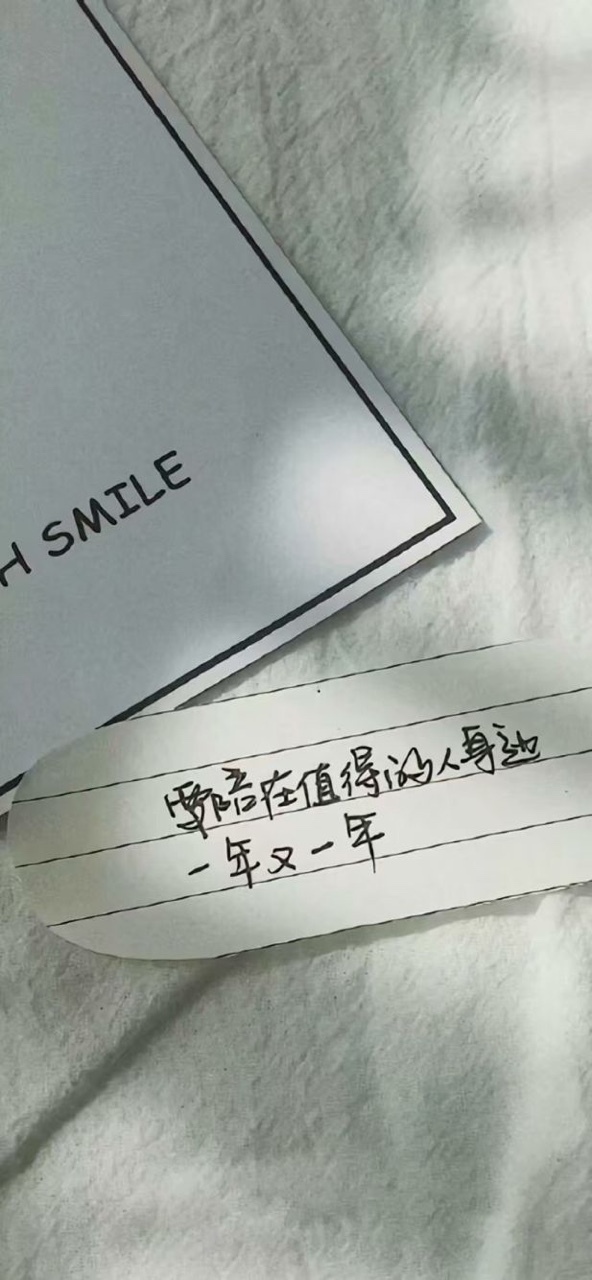 H SMILE
要陪在值得的人身边
一年又一年